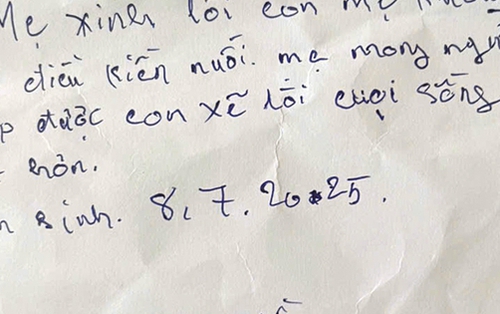 Mẹ xinh lỗi con mẹ
điều kiến nuối. mẹ mong ngu
p được con xẽ lối cuọi sống
hơn.
n sinh. 8, 7. 2025.